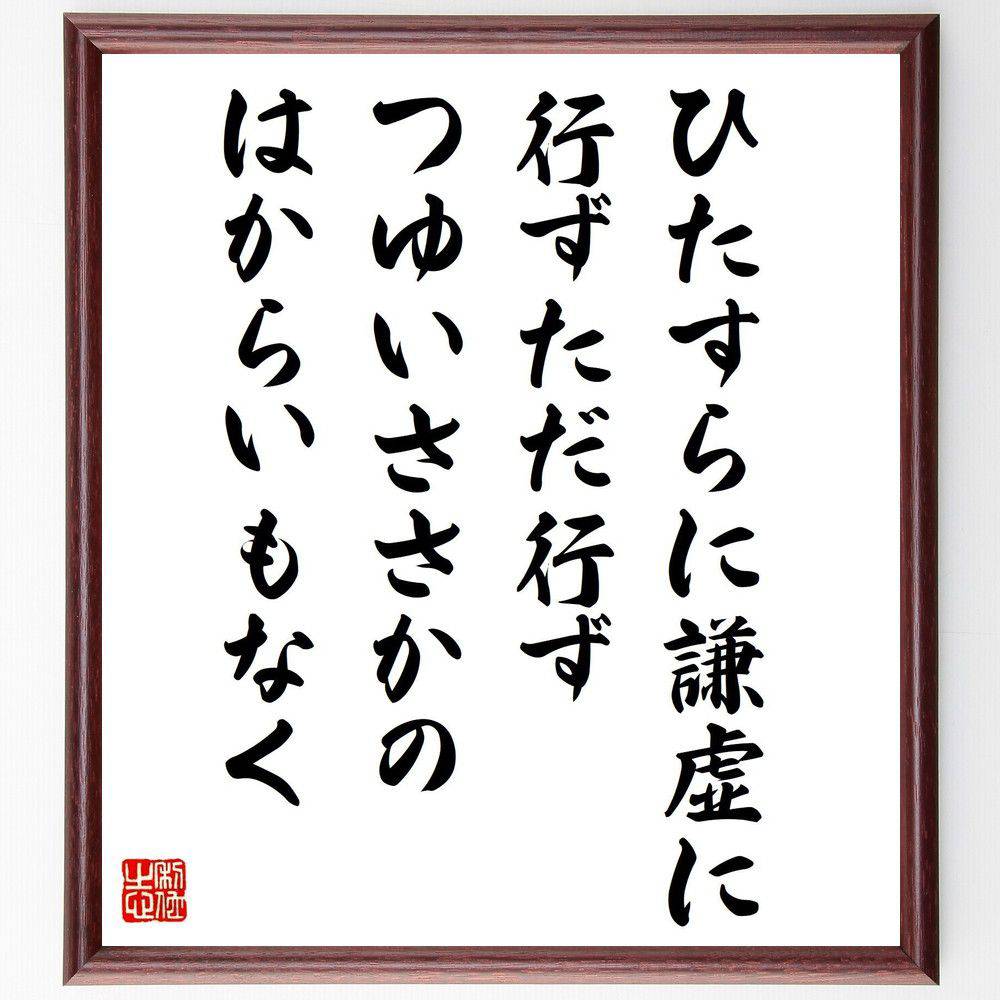 ひたすらに謙虚に
行ずただ行ず
つゆいささかの
はからいもなく